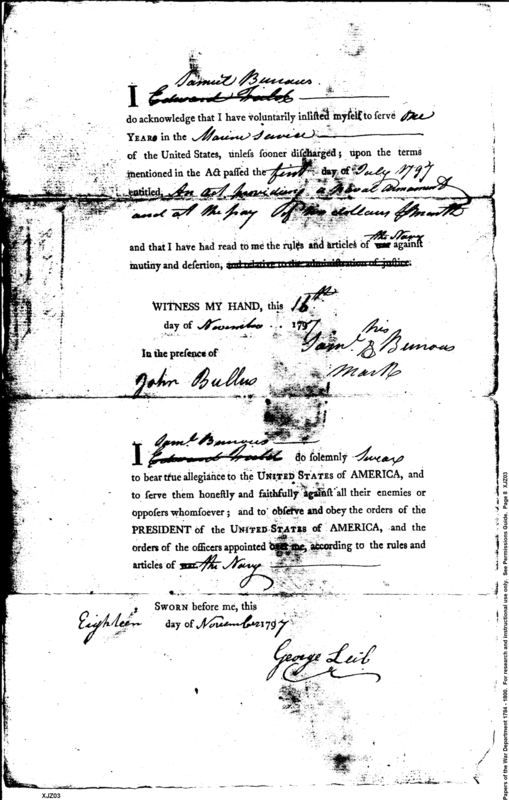 Samuel Burrows
I Edward Welsh
do acknowledge that I have voluntarily inlisted myself to serve One
YEARS in the Marine Service
of the United States, unless sooner discharged; upon the terms
mentioned in the Act passed the first day of July 1797
entitled, An Act providing a Naval armament
and at the pay of ten dollars p month
and that I have had read to me the rules and articles of war the Navy against
mutiny and desertion, and relative to the administration of justice.
WITNESS MY HAND, this 16th
day of November 1797
In the presence of
his
Saml B Burrows
mark
John Bullus
Saml Burrows
I Edward Welsh do solemnly Swear
to bear true allegiance to the UNITED STATES of AMERICA, and
to serve them honestly and faithfully against all their enemies or
opposers whomsoever; and to observe and obey the orders of the
PRESIDENT of the UNITED STATES of AMERICA, and the
orders of the officers appointed over me, according to the rules and
articles of war the Navy
SWORN before me, this
Eighteen day of November 1797
George Leib
Papers of the War Department 1784 - 1800. For research and instructional use only. See Permissions Guide. Page 8 XJZ03
XJZ03